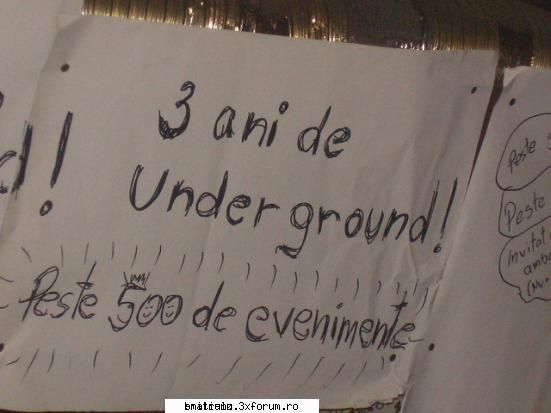 d!
3 ani de
Underground!
Peste 500 de evenimente
Peste
Peste
Invitat
.3xforum.ro